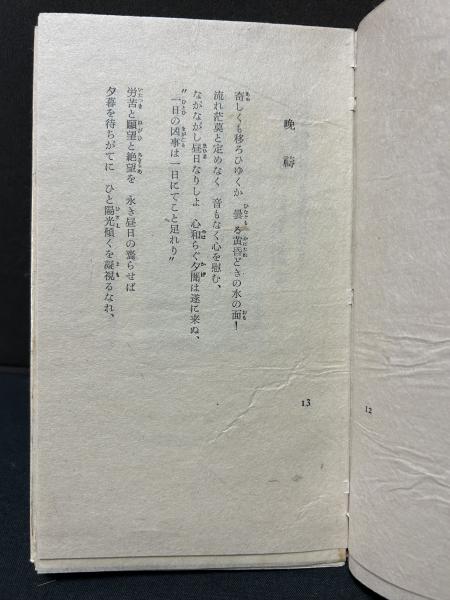 晩祷
奇しくも移ろひゆくか 曇る黄昏どきの水の面！
流れ茫莫と定めなく 音もなく心を慰む、
ながながし昼日なりしよ 心和らぐ夕闇は遂に来ぬ、
“一日の凶事は一日にてこと足れり”
労苦と願望と絶望を 永き昼日の齎らせば
夕暮を待ちがてに ひと陽光傾くを凝視るなれ、
13
12